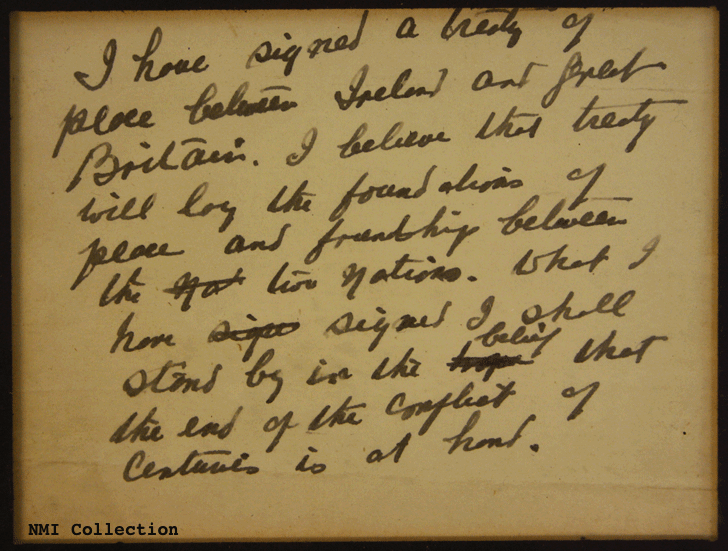 I have signed a treaty of
peace between Ireland and Great
Britain. I believe that treaty
will lay the foundations of
peace and friendship between
the Nat two Nations. What I
have sign signed I shall
stand by in the hope belief that
the end of the conflict of
centuries is at hand.
NMI Collection